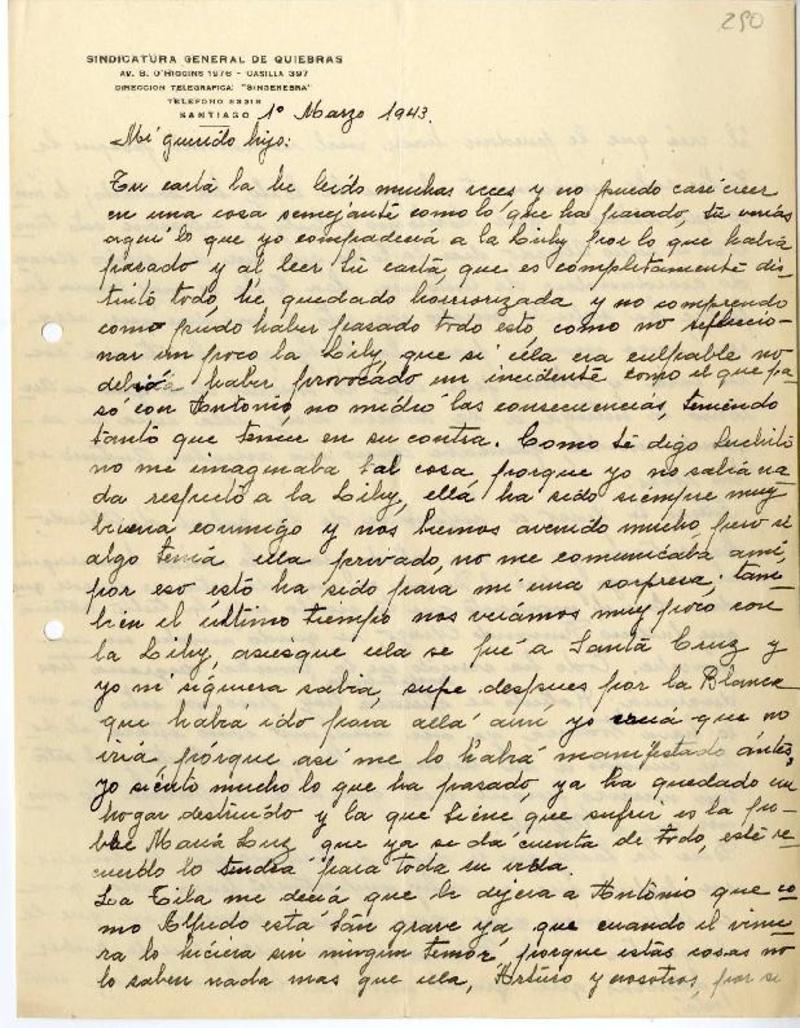 290
SINDICATURA GENERAL DE QUIEBRAS
AV. B. O'HIGGINS 1976 - CASILLA 397
DIRECCION TELEGRAFICA: "SINGENEBRA"
TELEFONO 83318
SANTIAGO 1º Marzo 1943.
Mi querido hijo:
Tu carta la he leido muchas veces y no puedo casi creer
en una cosa semejante como lo que ha pasado, tu verias
aqui lo que yo compadecia a la Lily por lo que habia
pasado y al leer tu carta, que es completamente dis-
tinto todo, he quedado horrorizada y no comprendo
como pudo haber pasado todo esto, como no refleccio-
nar un poco la Lily, que si ella era culpable no
debia haber provocado un incidente como el que pa-
só con Antonio, no midió las consecuencias, teniendo
tanto que temer en su contra. Como te digo Luchito
no me imaginaba tal cosa, porque yo no sabia na-
da respecto a la Lily, ella ha sido siempre muy
buena conmigo y nos hemos avenido mucho, pero si
algo tenia ella privado, no me comunicaba a mi,
por eso esto ha sido para mi una sorpresa; tam-
bien el último tiempo nos veiamos muy poco con
la Lily, asiesque ella se fué a Santa Cruz y
yo ni siquiera sabia, supe despues por la Blanca
que habia ido para allá, aun yo creia que no
iria, porque asi me lo habia manifestado antes,
yo siento mucho lo que ha pasado, ya ha quedado un
hogar destruido y la que tiene que sufrir es la po-
bre Maria Luz que ya se dá cuenta de todo, este re-
cuerdo lo tendrá para toda su vida.
La Tila me decia que le dijera a Antonio que co-
mo Alfredo esta tán grave ya, que cuando el vinie-
ra lo hiciera sin ningun temor, porque estas cosas no
lo saben nada mas que ella, Arturo y nosotros, por si